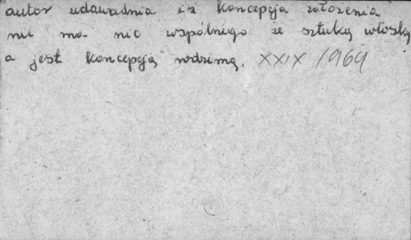 autor udawadnia iż koncepcja założenia
nie ma nic wspólnego ze sztuką włoską
a jest koncepcją rodzimą. XXIX /1969